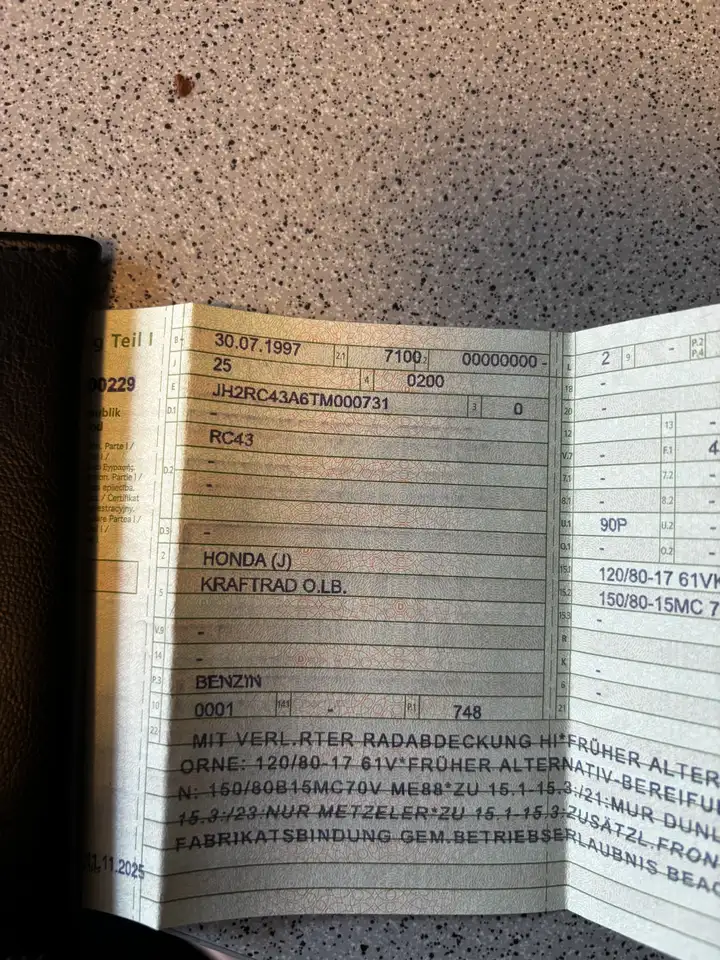 g Teil I
00229
ublik
nd
. Parte I /
I /
Εγγραφής.
on. Partie I /
s apliecība.
. / Certifikat
estracyjny.
are Partea I /
I /
11.11.2025
B 30.07.1997 2.1 7100 2.2 00000000 -
J 25 4 0200
E JH2RC43A6TM000731 3 0
D.1 -
RC43
D.2 -
-
-
D.3 -
2 HONDA (J)
5 KRAFTRAD O.LB.
V.9 -
14 -
P.3 BENZIN
10 0001 14.1 - P.1 748
22 MIT VERL.RTER RADABDECKUNG HI*FRÜHER ALTER
ORNE: 120/80-17 61V*FRÜHER ALTERNATIV-BEREIFU
N: 150/80B15MC70V ME88*ZU 15.1-15.3:/21:MUR DUNL
15.3:/23:NUR METZELER*ZU 15.1-15.3:ZUSÄTZL.FRON
FABRIKATSBINDUNG GEM.BETRIEBSERLAUBNIS BEAC
L 2 9 - P.2 P.4
18 -
20 -
12 13 -
V.7 - F.1 4
7.1 - 7.2 -
8.1 - 8.2 -
U.1 90P U.2 -
O.1 - O.2 -
15.1 120/80-17 61V
15.2 150/80-15MC 7
15.3 -
R
K -
6 -
21